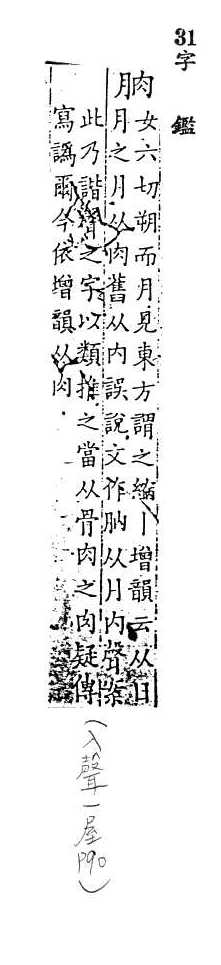 31字 鑑
朒
女六切朔而月見東方謂之縮丨增韻云从日
月之月从肉舊从内誤說文作肭从月内聲
此乃諧聲之字以類推之當从骨肉之肉疑傳
寫譌爾今依增韻从肉
(入聲一屋P90)